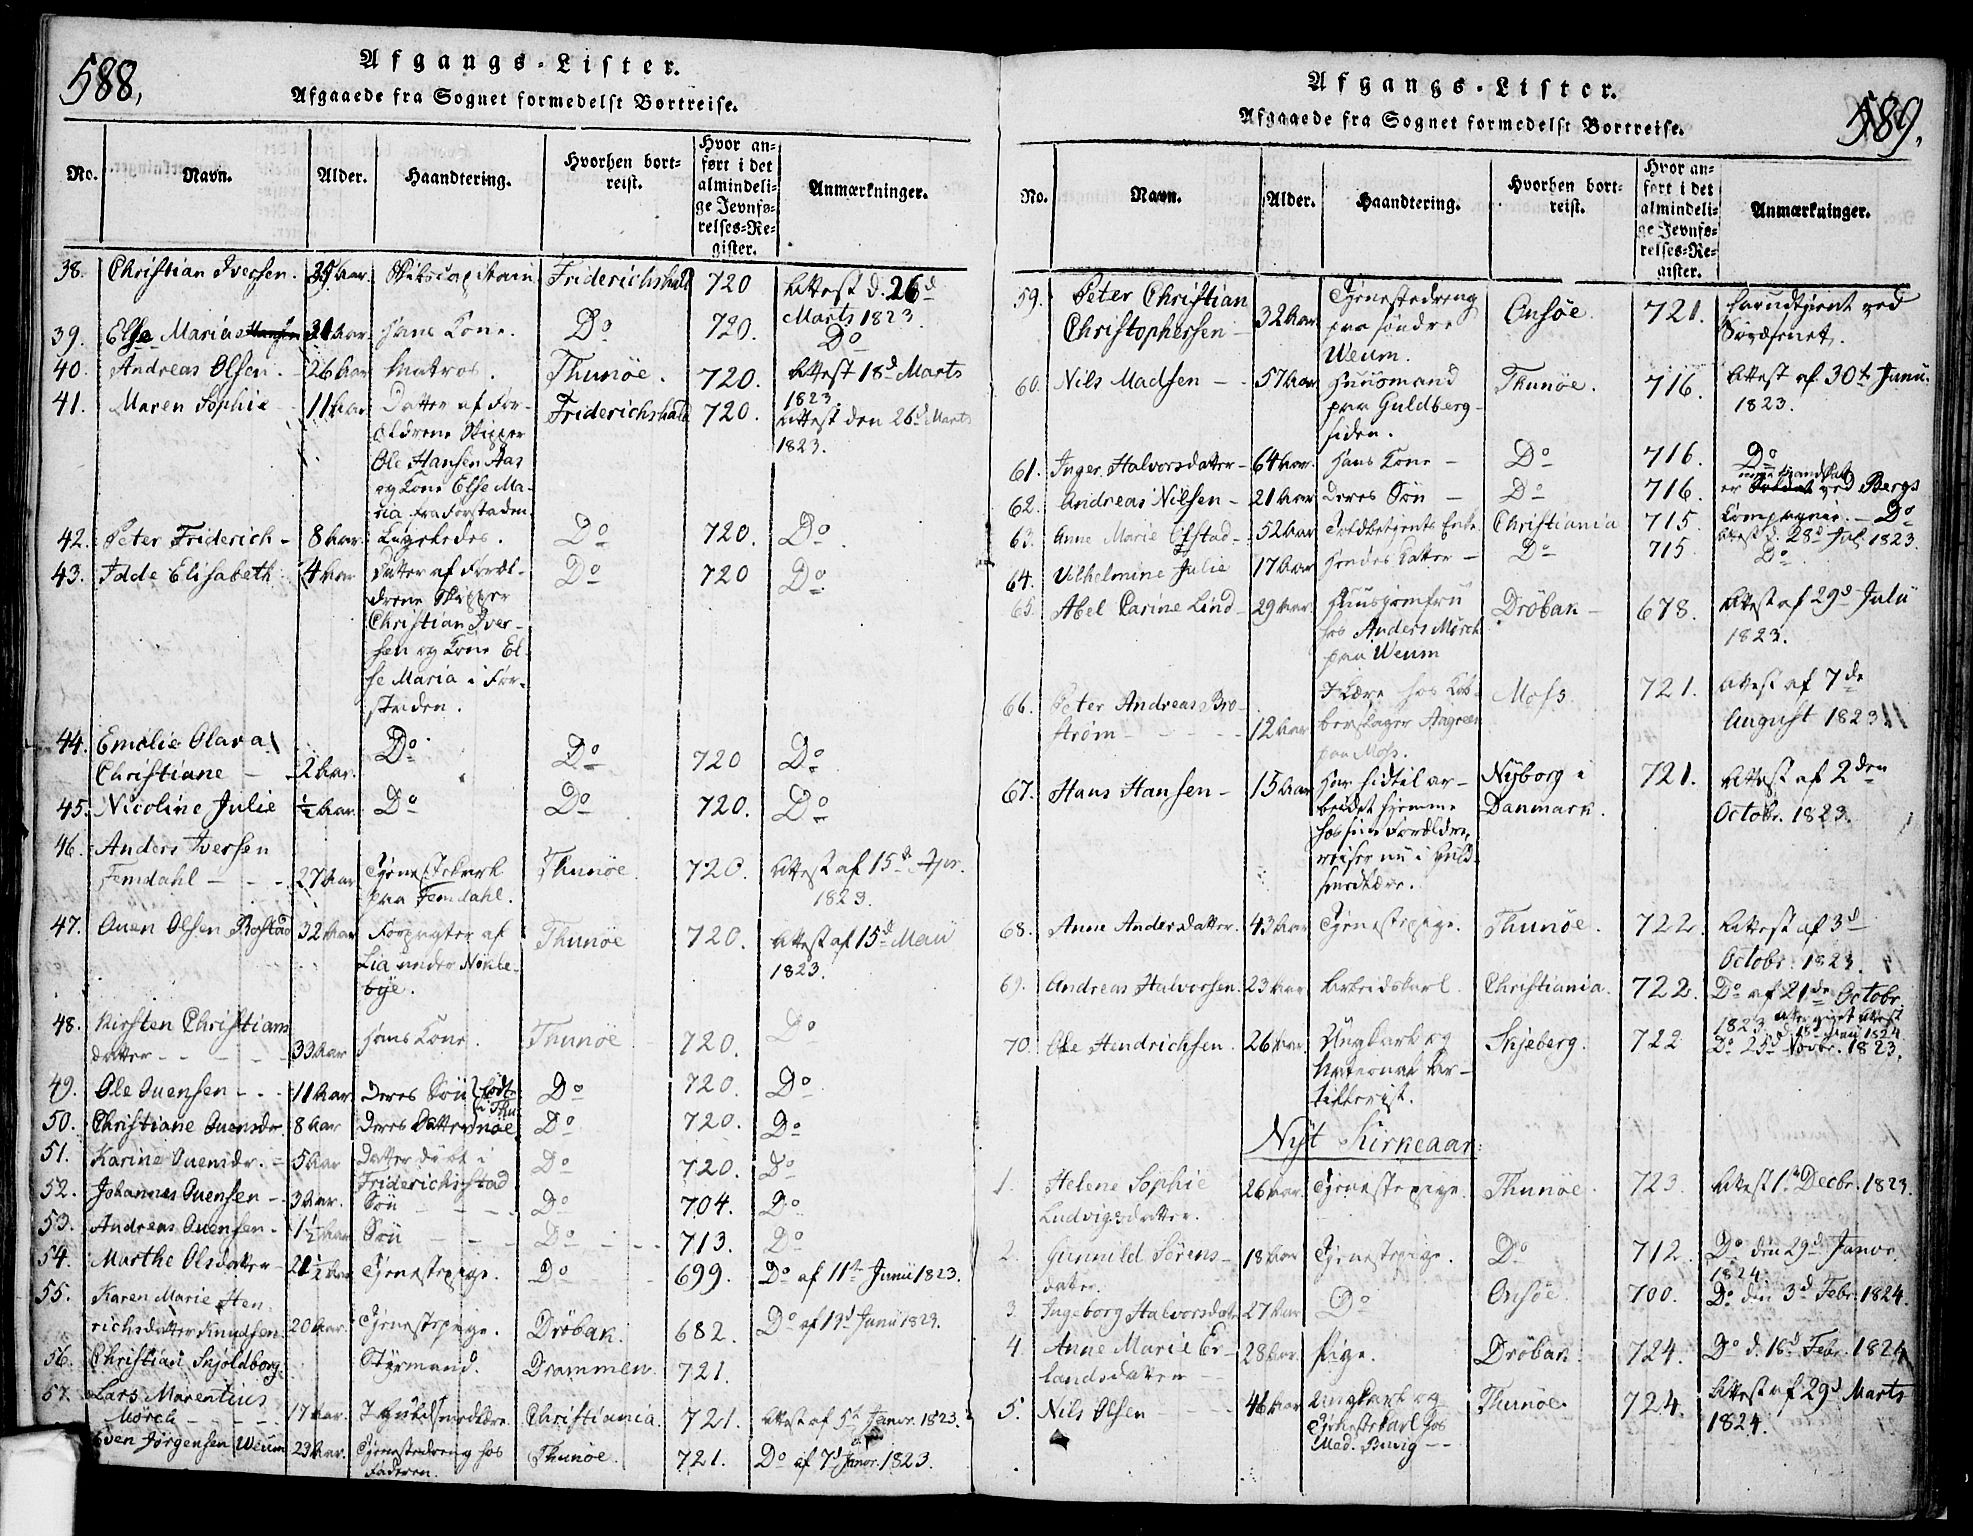 588,
Afgangs-Lister.
Afgaaede fra Sognet formedelst Bortreise.
No. Navn. Alder. Haandtering. Hvorhen bortreist. Hvor anført i det almindelige Jevnførelses-Register. Anmærkninger.
38. Christian Iversen. Aar Skibscaptain Friderichshald 720 Attest d. 26d Marts 1823.
39. Else Maria Aar hans Kone. Do 720. Do
40. Andreas Olsen. 26 Aar Matros. Thunøe. 720. Attest 18d Marts 1823.
41. Maren Sophie 11 Aar Datter af Forældrene Skipper Ole Hansen Aas og Kone Else Maria fra Forstaden Friderichshald 720. Attest den 26d Marts 1823.
42. Peter Friderich - 8 Aar Ligeledes. Do 720. Do
43. Idde Elisabeth 4 Aar Datter af Forældrene Skipper Christian Iversen og Kone Else Maria i Forstaden. Do 720 Do
44. Emelie Olava Christiane - 2 Aar. Do Do 720 Do
45. Nicoline Julie ½ Aar. Do Do 720. Do
46. Anders Iversen Femdahl - - 27 Aar Tjenestekarl paa Femdahl. Thunøe 720. Attest af 15d Apr. 1823.
47. Ouen Olsen Rostad 32 Aar Forpagter af Lia under Nøklebye. Thunøe 720. Attest af 15d Maii 1823.
48. Kirsten Christiansdatter - - 33 Aar hans Kone. Thunøe 720. Do
49. Ole Ouensen - - 11 Aar Deres Søn fødte i Thunøe Do 720. Do
50. Christiane Ouensdr. 8 Aar Deres Datter Do 720. Do
51. Karine Ouensdr. - 5 Aar Datter døbt i Friderichstad Do 720. Do
52. Johannes Ouensen - 3 Aar. Søn - - Do 704. Do
53. Andreas Ouensen - 1½ Aar Søn - - Do - - 713. Do
54. Marthe Olsdatter - 21½ Aar Tjenestepige. Do 699. Do af 11te Junii 1823.
55. Karen Marie Henrichsdatter Knudsen 20 Aar. Tjenestepige. Drøbak. 682. Do af 13d Junii 1823.
56. Christian Skjoldborg. Styrmand. Drammen. 721.
57. Lars Marentius Mørch - - 17 Aar. I Guldsmedlære. Christiania. 721. Attest af 5te Janvr. 1823.
Sven Jørgensen Weum 23 Aar. Tjenestedreng hos Faderen. Thunøe. 721. Do af 7d Janvr. 1823.
589.
Afgangs-Lister.
Afgaaede fra Sognet formedelst Bortreise.
No. Navn. Alder. Haandtering. Hvorhen bortreist. Hvor anført i det almindelige Jevnførelses-Register. Anmærkninger.
59. Peter Christian Christophersen - 32 Aar Tjenestedreng paa søndre Weum. Onsøe. 721. har udtjent ved Søvæsenet.
60. Nils Madsen - 57 Aar Huusmand paa Guldbergsiden. Thunøe. 716. Attest af 30te Janu. 1823.
61. Inger Halvorsdatter - 64 Aar. hans Kone - Do 716. Do
62. Andreas Nilsen - 21 Aar Deres Søn - Do 716. er ved Bergs Compagnie. - Do
63. Anne Marie Efstad - 52 Aar Toldbetjents Enke Christiania 715. Attest d. 28d Juli 1823.
64. Vilhelmine Julie 17 Aar hendes Datter - Do 715 Do
65. Abel Carine Lind - 29 Aar. Huusjomfru hos Anders Mørch paa Weum Drøbak - 678. Attest af 29d Julii 1823.
66. Peter Andreas Brostrøm - - 12 Aar I Lære hos Kobberslager Aagreen paa Moss. Moss 721. Attest af 7de August 1823
67. Hans Hansen - 15 Aar har hidtil arbeidet hjemme hos sine Forældre, reiser nu i Guldsmedlære. Nyborg i Danmark. 721. Attest af 2den Octobr. 1823.
68. Anne Andersdatter. 43 Aar Tjenestepige. Thunøe. 722. Attest af 3d Octobr. 1823.
69. Andreas Halvorsen. 23 Aar Arbeidskarl. Christiania. 722. Do af 21de Octobr. 1823. Atter givet Attest d. 18d Junii 1824
70. Ole Hendrichsen. 26 Aar. Ungkarl og National Artillerist. Skjeberg. 722 Do 25d Novbr. 1823.
Nyt Kirkeaar.
1. Helene Sophie Ludvigsdatter. 26 Aar. Tjenestepige. Thunøe. 723. Attest 1te Decbr. 1823.
2. Gunnild Sørensdatter. 18 Aar Tjenestepige. Do 712. Do den 29d Janvr. 1824.
3. Ingeborg Halvorsdatr 27 Aar Do Onsøe. 700. Do den 3d Febr. 1824.
4. Anne Marie Erlandsdatter - 28 Aar. Pige. Drøbak. 724. Do d. 18d Febr. 1824
5. Nils Olsen 46 Aar Ungkarl og Tjenestekarl hos Mad. Thunøe. 724. Attest af 29d Marts 1824.